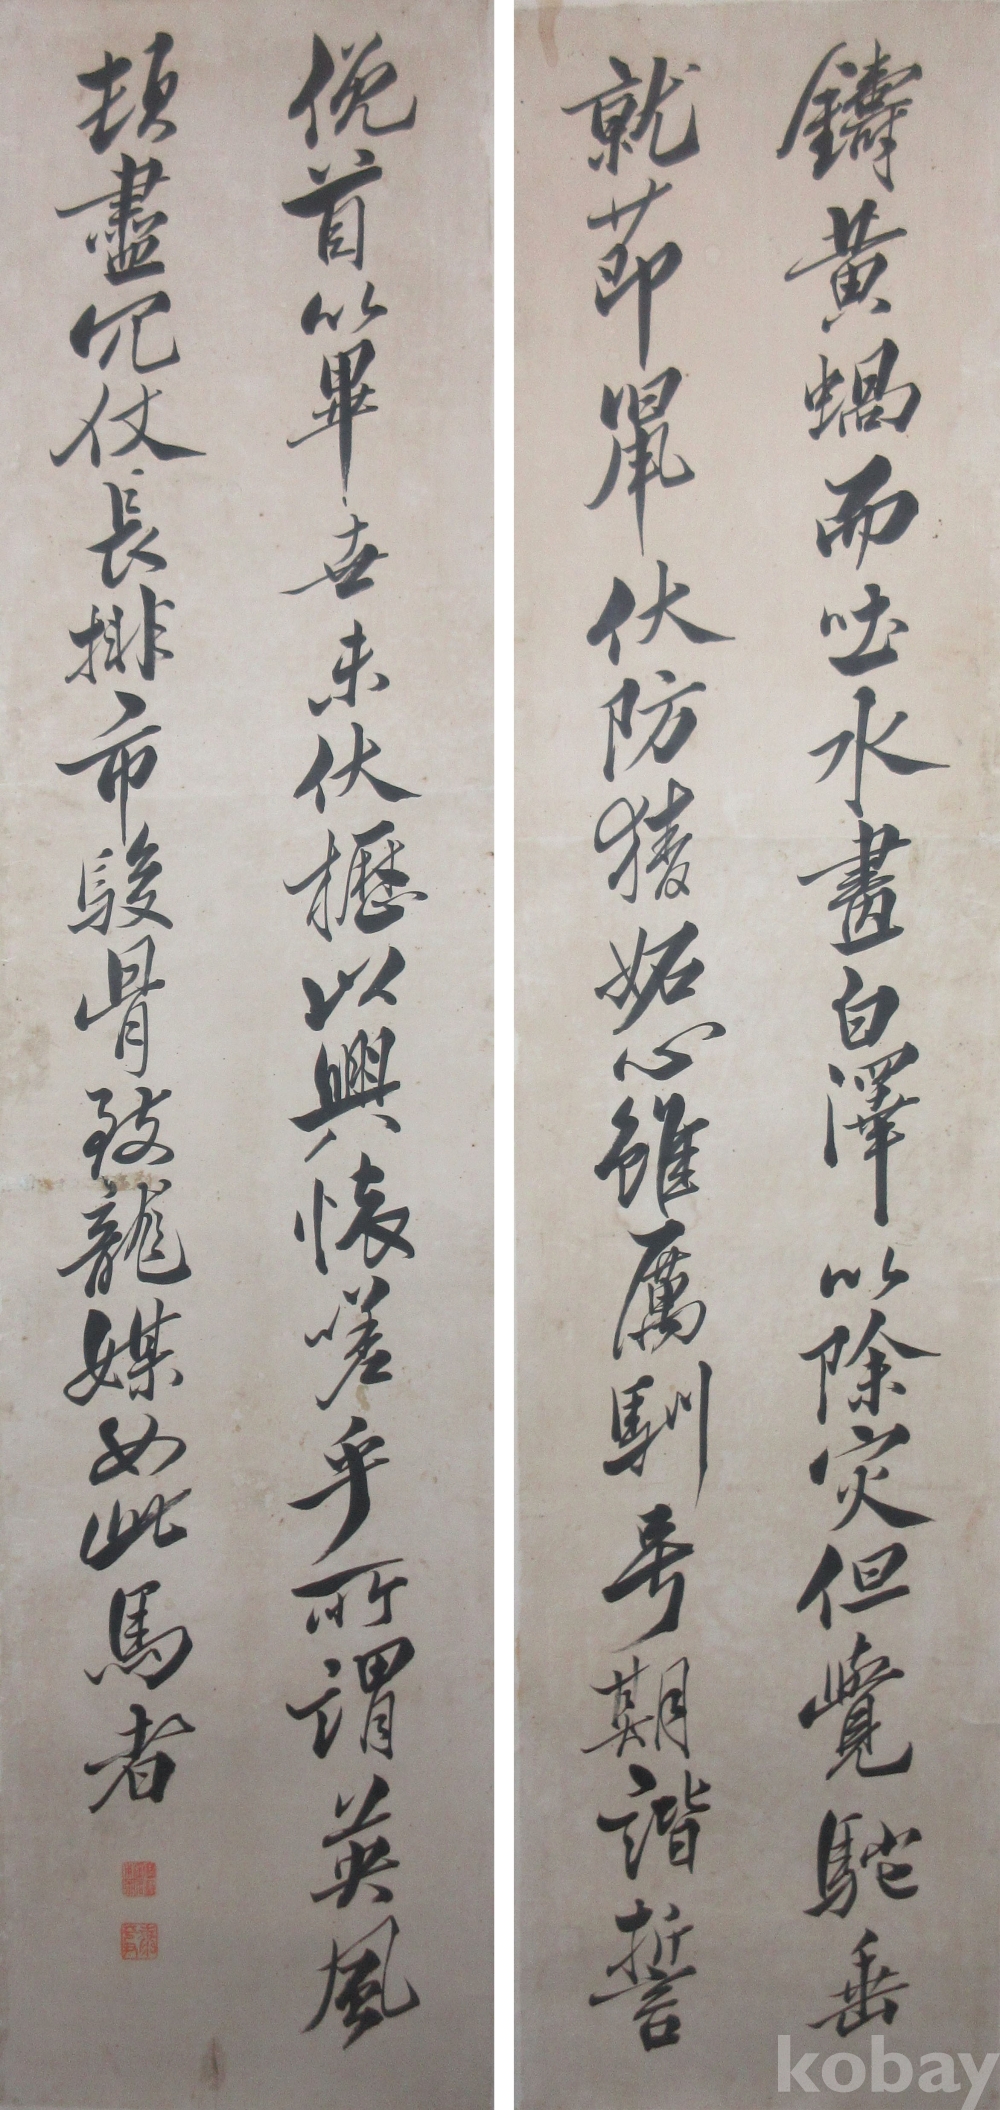 鑄黃蝸而吐水畫白澤以除灾但覺駝垂
就節鼠伏防猜妬心雖厲馴号期諧誓
俛首以畢世未伏櫪以興懷嗟乎所謂英風
頓盡冗仗長排市駿骨致龍媒如此馬者
kobay